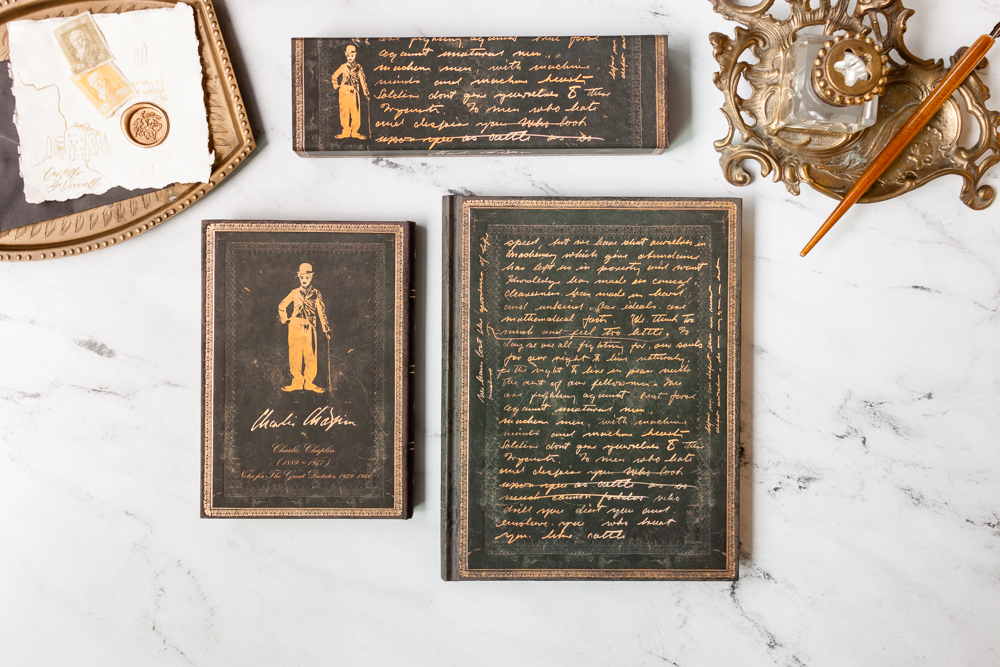 are fighting against brute force
against unatural men,
machine men, with machine
minds and machine hearts
Soldiers dont give yourselves to these
To men who hate
and despise you who look
upon you as cattle as so
Charlie Chaplin
Charlie Chaplin
(1889 ~ 1977)
Notes for The Great Dictator 1939-1940
speed, but we have shut ourselves in
machinery which gives abundance
has left us in poverty and want
Knowledge has made us cynical
cleverness has made us hard
and unkind. Our ideals are
mathematical facts. We think to
much and feel too little, To
day we are all fighting for our souls
for our right to live naturaly,
for the right to live in peace with
the rest of our fellowmen. We
are fighting against brute force
against unatural men,
machine men, with machine
minds and machine hearts
Soldiers dont give yourselves to these
To men who hate
and despise you who look
upon you as cattle as so
much cannon fodder who
drill you diet you and
enslave you who treat
you like cattle
We have lost the